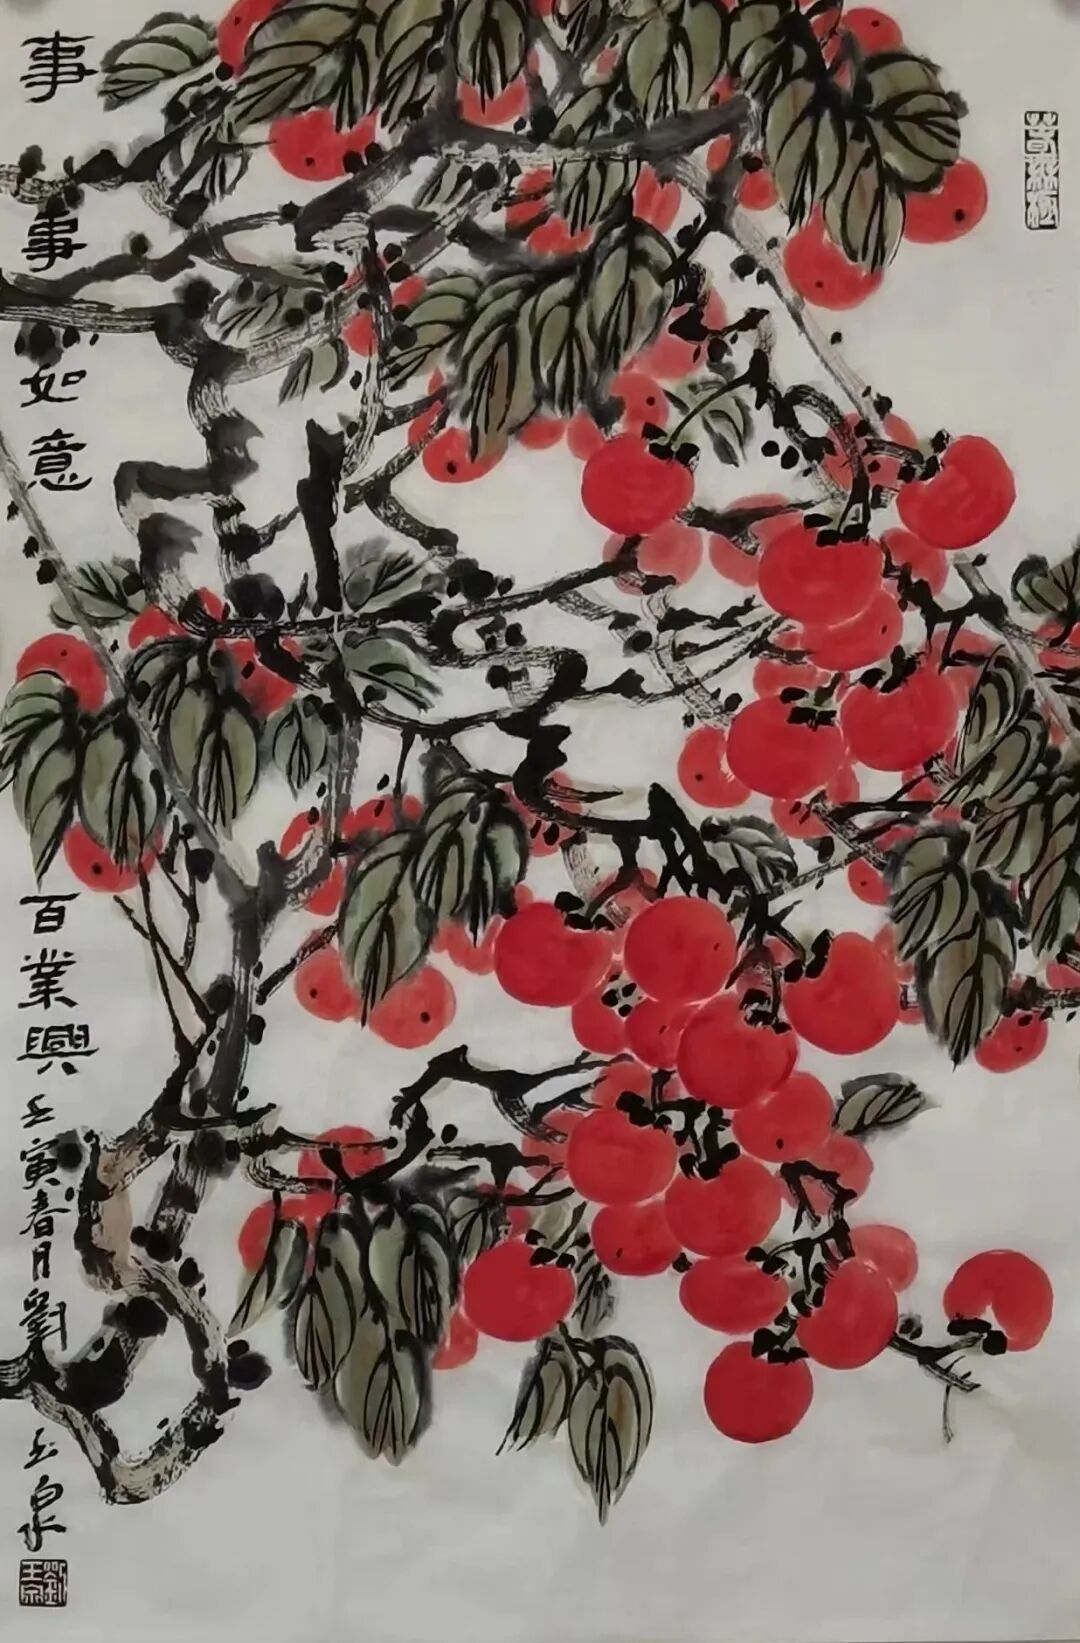 事事如意
百業興
壬寅春月劉玉泉